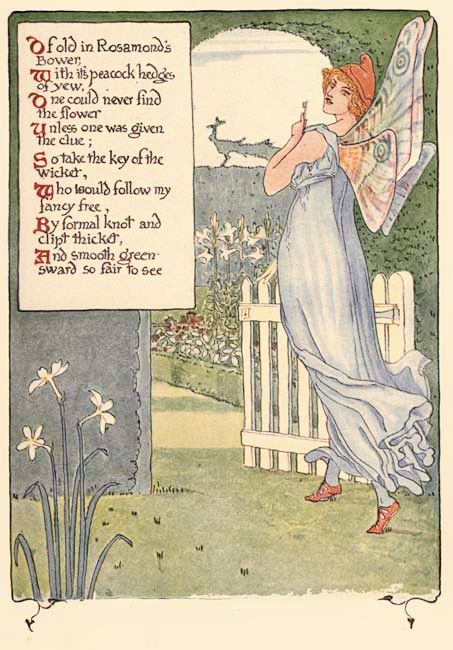 Of old in Rosamond's
Bower,
With it's peacock hedges
of yew,
One could never find
the flower
Unless one was given
the clue;
So take the key of the
wicket,
Who would follow my
fancy free,
By formal knot and
clipt thicket,
And smooth green-
sward so fair to see